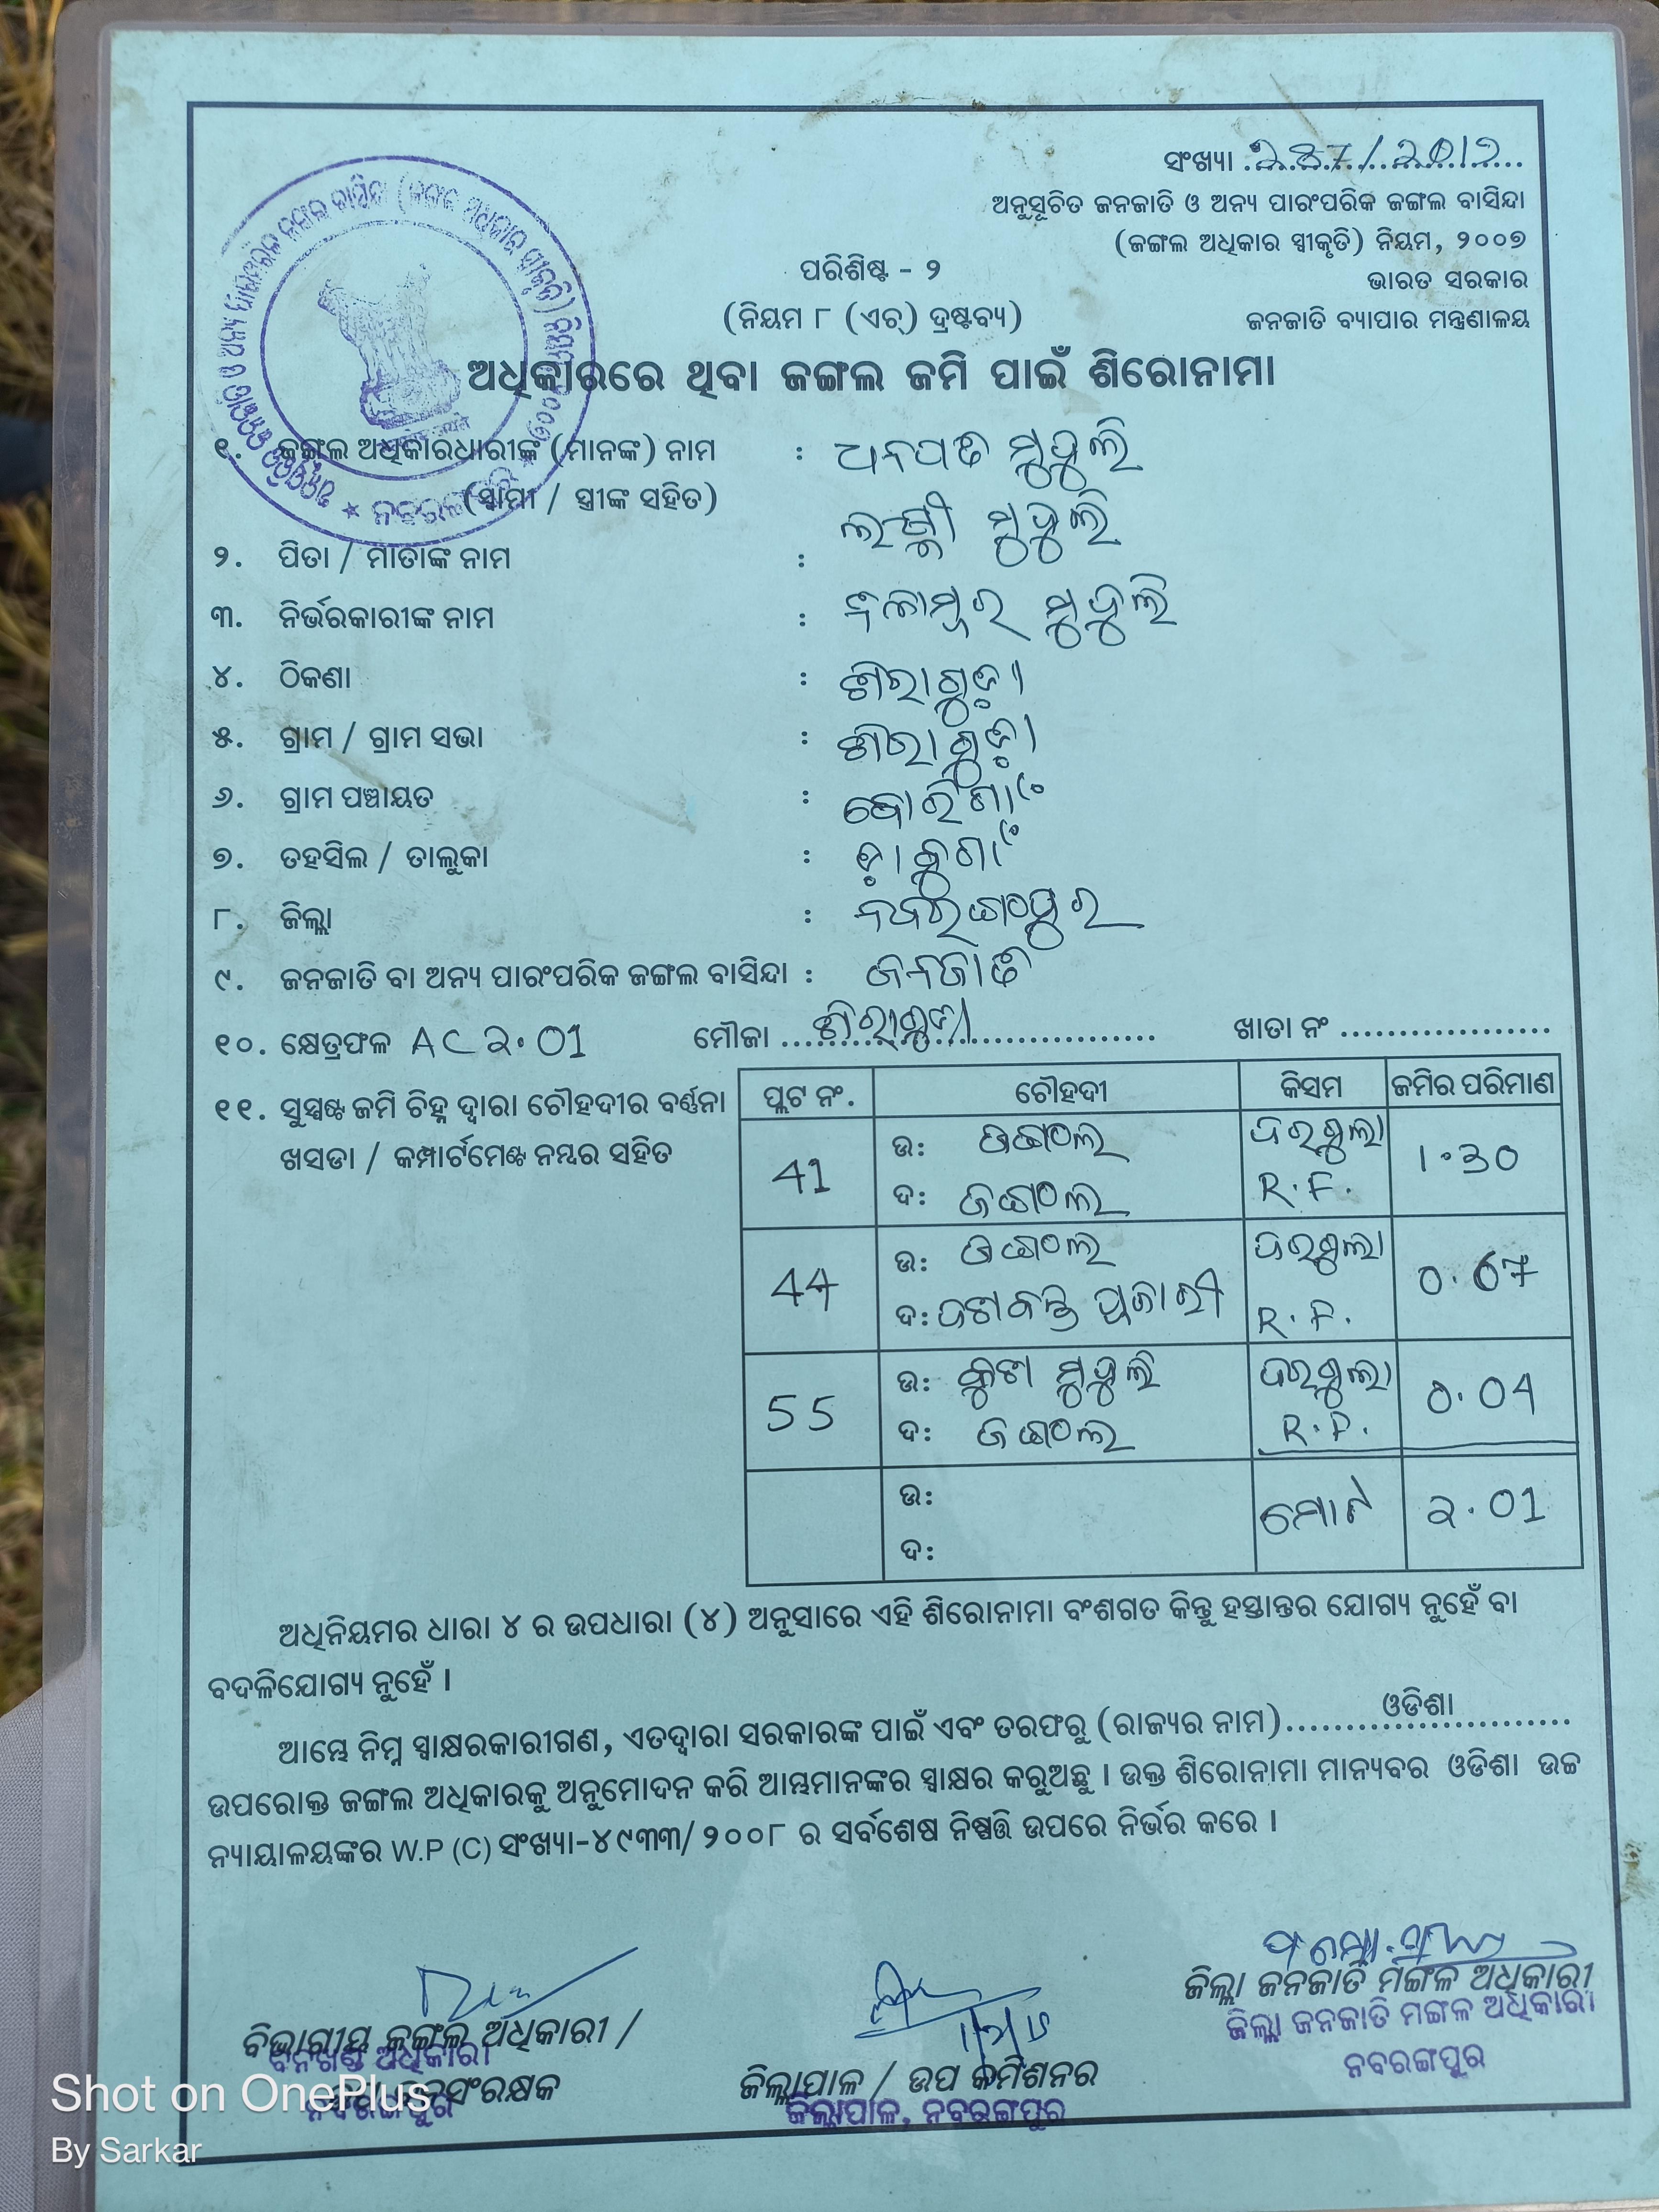 ସଂଖ୍ୟା :
ଅନୁସୂଚିତ ଜନଜାତି ଓ ଅନ୍ୟ ପାରଂପରିକ ଜଙ୍ଗଲ ବାସିନ୍ଦା
(ଜଙ୍ଗଲ ଅଧିକାର ସ୍ୱୀକୃତି) ନିୟମ, ୨୦୦୭
ପରିଶିଷ୍ଟ - ୨
ଭାରତ ସରକାର
(ନିୟମ ୮ (ଏଚ୍) ଦ୍ରଷ୍ଟବ୍ୟ)
ଜନଜାତି ବ୍ୟାପାର ମନ୍ତ୍ରଣାଳୟ
ଅଧିକାରରେ ଥିବା ଜଙ୍ଗଲ ଜମି ପାଇଁ ଶିରୋନାମା
୧. ଜଙ୍ଗଲ ଅଧିକାରଧାରୀଙ୍କ (ମାନଙ୍କ) ନାମ : ଧନପତି ମୁଦୁଲି
(ସ୍ୱାମୀ / ସ୍ତ୍ରୀଙ୍କ ସହିତ) ଲକ୍ଷ୍ମୀ ମୁଦୁଲି
୨. ପିତା / ମାତାଙ୍କ ନାମ :
୩. ନିର୍ଭରକାରୀଙ୍କ ନାମ : ମୁଦୁଲି
୪. ଠିକଣା : ଶିରାଗୁଡ଼ା
୫. ଗ୍ରାମ / ଗ୍ରାମ ସଭା : ଶିରାଗୁଡ଼ା
୬. ଗ୍ରାମ ପଞ୍ଚାୟତ : ବୋରିଗାଁ
୭. ତହସିଲ / ତାଲୁକା : ଡ଼ାବୁଗାଁ
୮. ଜିଲ୍ଲା : ନବରଙ୍ଗପୁର
୯. ଜନଜାତି ବା ଅନ୍ୟ ପାରଂପରିକ ଜଙ୍ଗଲ ବାସିନ୍ଦା : ଜନଜାତି
୧୦. କ୍ଷେତ୍ରଫଳ AC ୨.01 ମୌଜା ଶିରାଗୁଡା ଖାତା ନଂ ..................
୧୧. ସୁସ୍ପଷ୍ଟ ଜମି ଚିହ୍ନ ଦ୍ୱାରା ଚୌହଦୀର ବର୍ଣ୍ଣନା
ଖସଡା / କମ୍ପାର୍ଟମେଣ୍ଟ ନମ୍ବର ସହିତ
ପ୍ଲଟ ନଂ. ଚୌହଦୀ କିସମ ଜମିର ପରିମାଣ
41 ଉ: ଜଙ୍ଗଲ 1.30
ଦ: ଜଙ୍ଗଲ R.F.
44 ଉ: ଜଙ୍ଗଲ 0.67
ଦ: ପୂଜାରୀ R.F.
55 ଉ: ମୁଦୁଲି 0.04
ଦ: ଜଙ୍ଗଲ R.F.
ଉ: ମୋଟ ୨.01
ଦ:
ଅଧିନିୟମର ଧାରା ୪ ର ଉପଧାରା (୪) ଅନୁସାରେ ଏହି ଶିରୋନାମା ବଂଶଗତ କିନ୍ତୁ ହସ୍ତାନ୍ତର ଯୋଗ୍ୟ ନୁହେଁ ବା
ବଦଳିଯୋଗ୍ୟ ନୁହେଁ ।
ଆମ୍ଭେ ନିମ୍ନ ସ୍ୱାକ୍ଷରକାରୀଗଣ, ଏତଦ୍ୱାରା ସରକାରଙ୍କ ପାଇଁ ଏବଂ ତରଫରୁ (ରାଜ୍ୟର ନାମ)........ଓଡିଶା........
ଉପରୋକ୍ତ ଜଙ୍ଗଲ ଅଧିକାରକୁ ଅନୁମୋଦନ କରି ଆମ୍ଭମାନଙ୍କର ସ୍ୱାକ୍ଷର କରୁଅଛୁ । ଉକ୍ତ ଶିରୋନାମା ମାନ୍ୟବର ଓଡିଶା ଉଚ୍ଚ
ନ୍ୟାୟାଳୟଙ୍କର W.P (C) ସଂଖ୍ୟା-୪୯୩୩/୨୦୦୮ ର ସର୍ବଶେଷ ନିଷ୍ପତ୍ତି ଉପରେ ନିର୍ଭର କରେ ।
ଜିଲ୍ଲା ଜନଜାତି ମଙ୍ଗଳ ଅଧିକାରୀ
ଜିଲ୍ଲା ଜନଜାତି ମଙ୍ଗଳ ଅଧିକାରୀ
ନବରଙ୍ଗପୁର
ବିଭାଗୀୟ ଜଙ୍ଗଲ ଅଧିକାରୀ /
ବନଖଣ୍ଡ ଅଧିକାରୀ
ନବରଙ୍ଗପୁର
ଜିଲ୍ଲାପାଳ / ଉପ କମିଶନର
ଜିଲ୍ଲାପାଳ, ନବରଙ୍ଗପୁର
Shot on OnePlus
By Sarkar